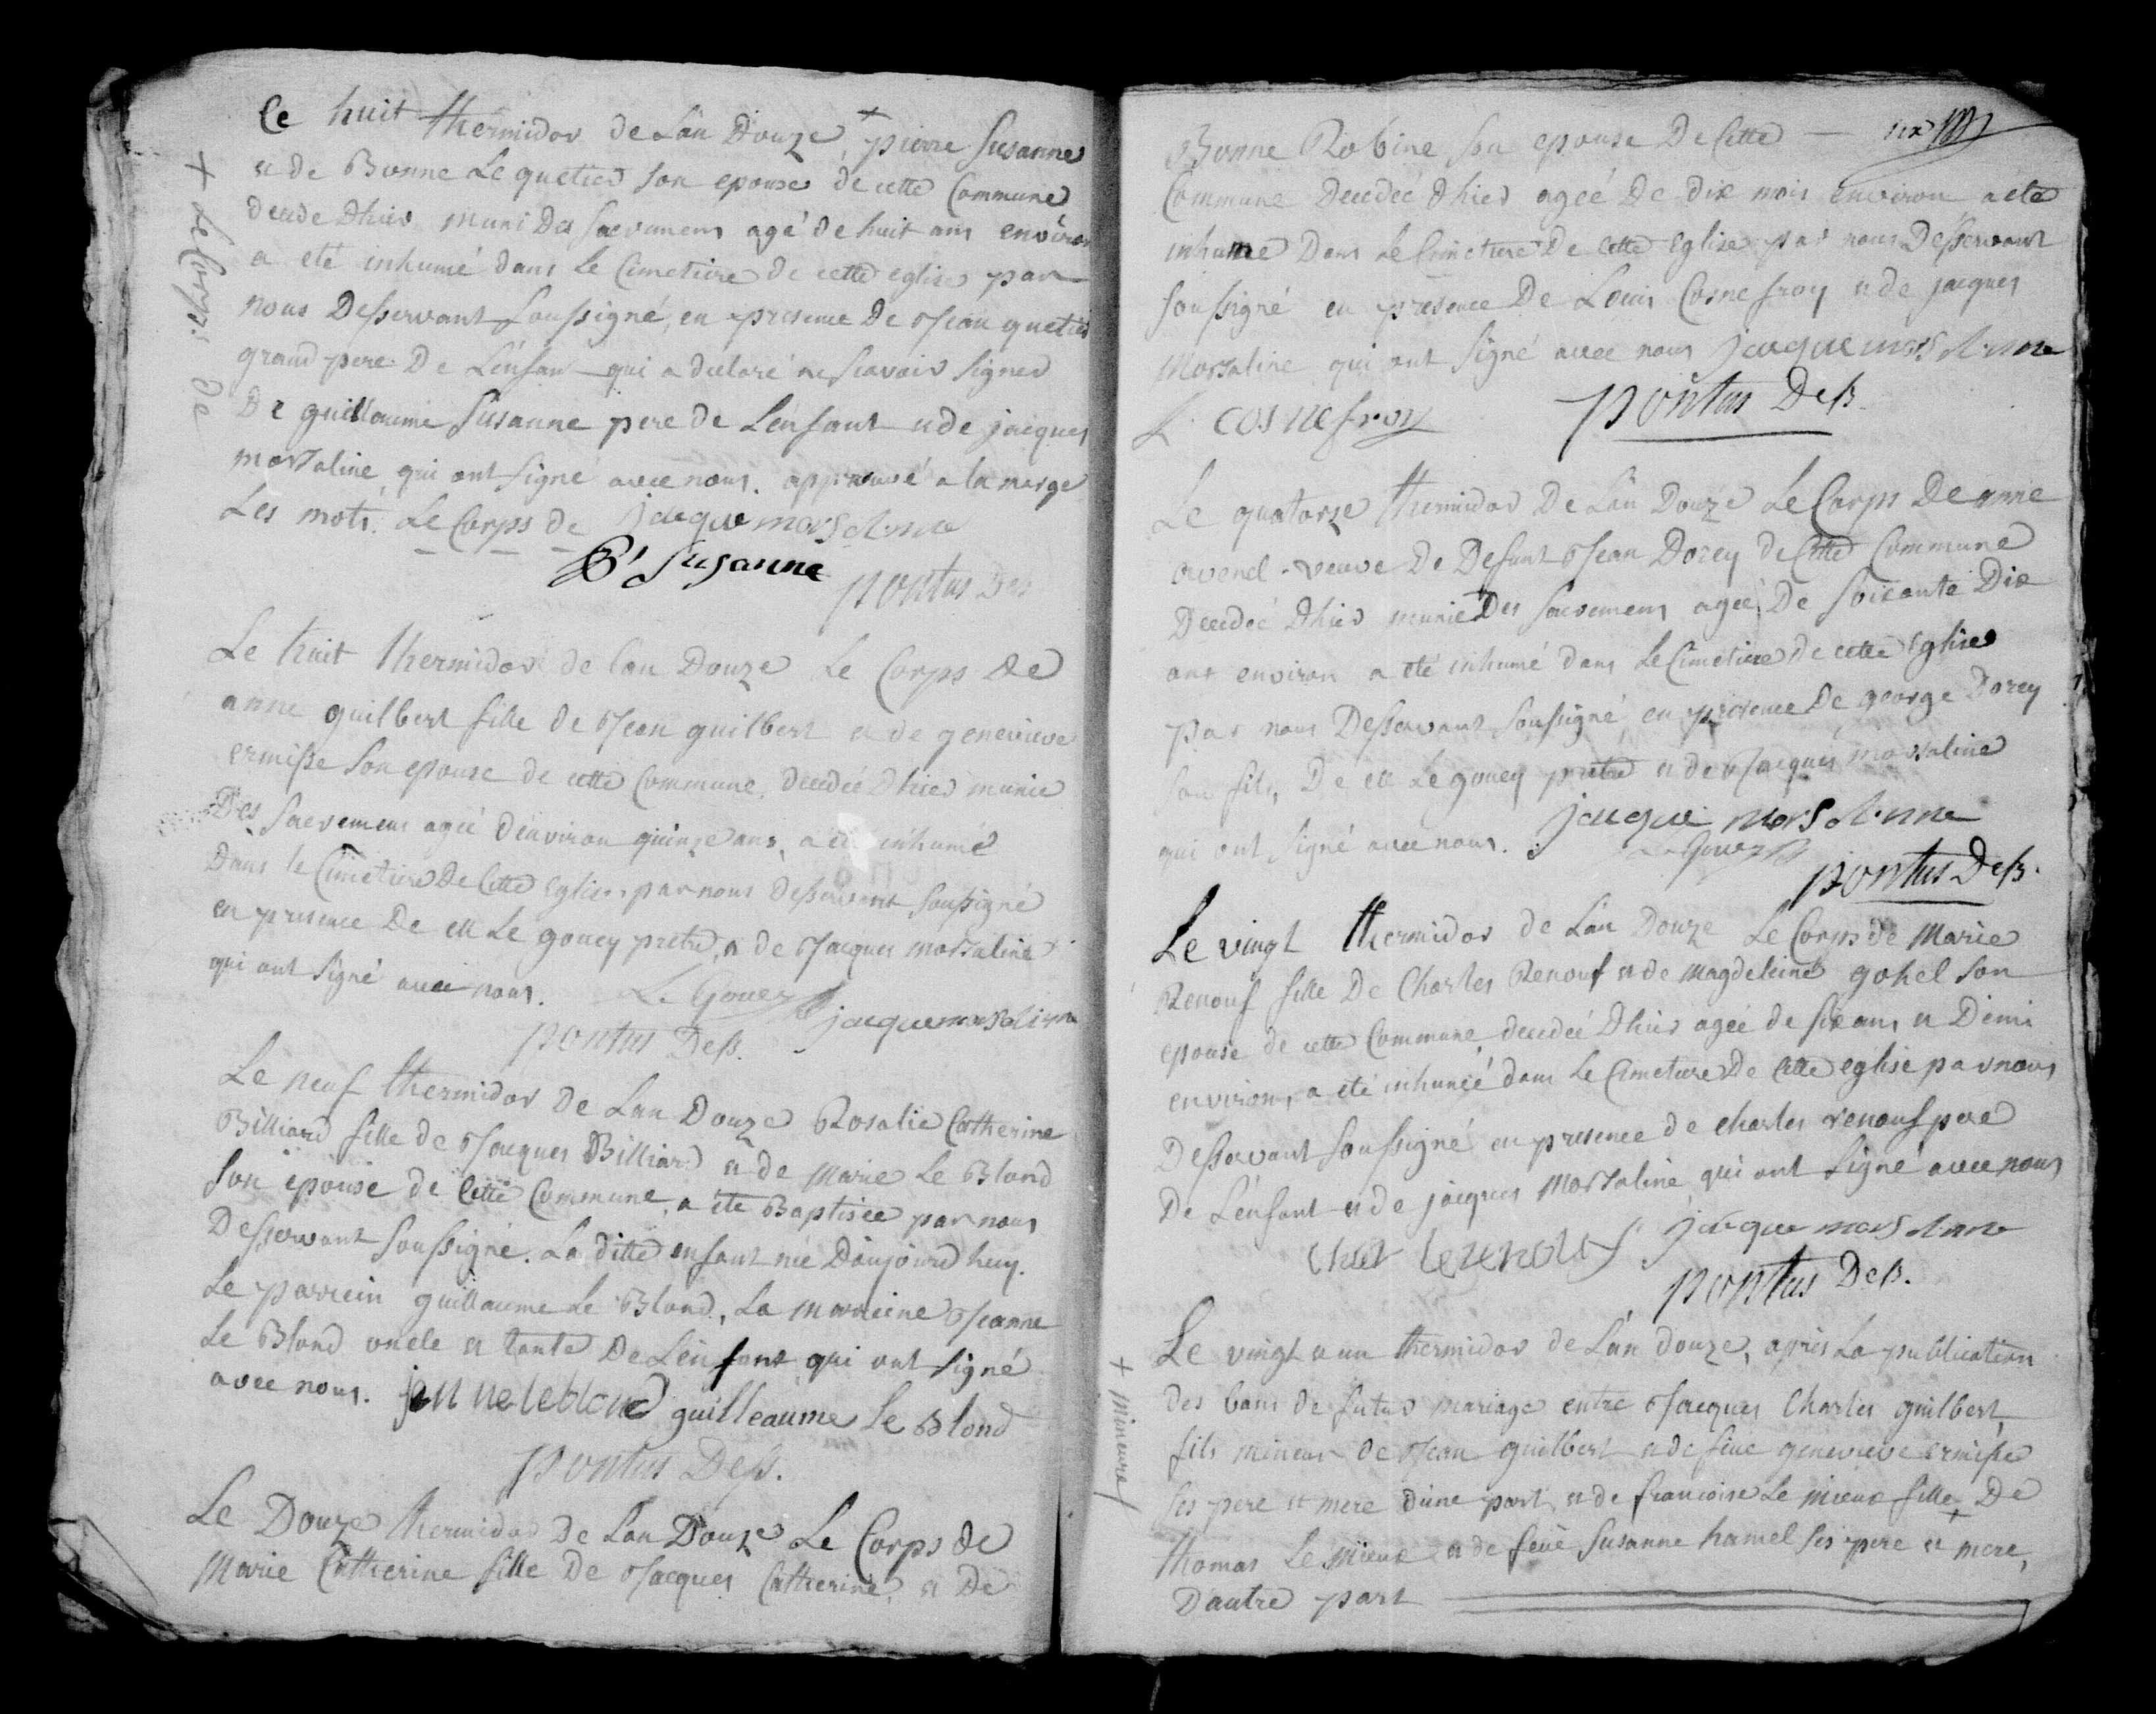 Le huit thermidor de L'an Douze, + pierre Susanne
et de Bonne Le quetier son epouse de cette Commune
decedé d'hier muni des sacremens agé de huit ans environ
a eté inhumé dans le Cimetiere de cette eglise par
nous Desservant soussigné, en presence De Jean quetier
grand pere De L'enfant qui a declaré ne scavoir signer
De guillaume Susanne pere de L'enfant et de jacques
morsaline qui ont signé avec nous. approuvé a la marge
Les mots. Le Corps de jacque morsalinne
G Susanne
pontus Des
+ le Corps de
Le huit thermidor de l'an Douze Le Corps de
anne guilbert fille de Jean guilbert et de genevieve
ermisse son epouse de cette Commune, decedée d'hier munie
Des sacremens agée d'environ quinze ans, a eté inhumé
Dans le Cimetiere De Cette Eglise par nous desservant soussigné
en presence De Le gouey pretre, et de Jacques morsaline
qui ont signé avec nous. Le Gouey jacque morsalinne
pontus Dess.
Le neuf thermidor De L'an Douze Rosalie Catherine
Billiard fille de Jacques Billiard et de Marie Le Blond
son epouse de Cette Commune, a eté Baptisée par nous
Desservant soussigné. La ditte enfant née D'aujourd'huy.
Le parrein guillaume Le Blond, La marreine Jeanne
Le Blond oncle et tante De L'enfant qui ont signé
avec nous. jenne leblond guilleaume le Blond
pontus Dess.
Le Douze thermidor De L'an Douze Le Corps de
Marie Catherine fille De Jacques Catherine, et De
Bonne Robine son epouse De Cette —
Commune Decedée d'hier agée De dix mois environ a eté
inhumée Dans Le Cimetiere De Cette Eglise par nous Desservant
soussigné en presence De Louis Cosnefroy et de jacques
Morsaline qui ont signé avec nous jacque morsalinne
L. cosnefroy pontus Dess.
Le quatorze thermidor De L'an Douze Le Corps De anne
avenel veuve De Defunt Jean Dorey de Cette Commune
Decedée d'hier munie Des sacremens agée De soixante Dix
ans environ a eté inhumé dans Le Cimetiere de cette Eglise
par nous Desservant soussigné, en presence De george Dorey
son fils, De Le gouey pretre et de Jacques morsaline
qui ont signé avec nous. jacque morsalinne
Le Gouey
pontus Dess.
Le vingt thermidor de L'an Douze Le Corps de Marie
Renouf fille De Charles Renouf et de Magdeleine gohel son
epouse de cette Commune, decedée d'hier agée de six ans et Demi
environ, a eté inhumée dans Le Cimetiere De Cette eglise par nous
Desservant soussigné en presence de charles renouf pere
De L'enfant et de jacques Morsaline qui ont signé avec nous
jacque morsalinne
pontus Dess.
Le vingt et un thermidor de L'an douze, après La publication
des bans de futur mariage entre Jacques Charles guilbert,
fils mineur de Jean guilbert et de feue genevieve ermisse
ses pere et mere d'une part, et de francoise Le mieux fille + De
thomas Le Mieux et de feue Susanne hamel ses pere et mere,
D'autre part
+ mineure